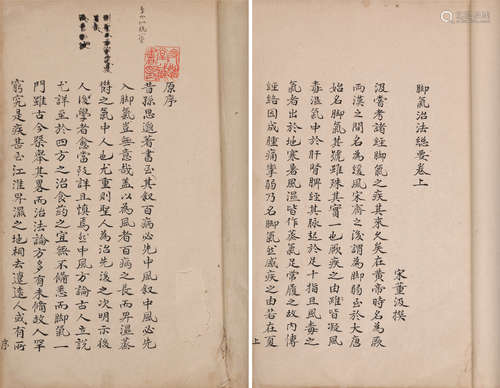 原序
昔孫思邈者書至其叙百病必先中風叙中風必先
入脚氣豈無意哉蓋以為風者百病之長而卑濕蒸
欝之氣中人也尤重則聖人為治先後之次明示後
人後學者僉當致詳且慎焉然中風方論古人立說
尤詳至於四方之治食药之宜無不備悉而脚氣一
門雖古今槩舉其畧而治法論方多有未備故人罕
窮究是疾甚至江淮卑濕之地相去遼遠人或有所
序
脚氣治法總要卷上
宋董汲撰
汲嘗考諸經脚氣之疾其来久矣在黄帝時名為厥
两漢之間名為緩風宋齊之後謂為脚弱至於大唐
始名脚氣其號雖殊其實一也厥疾之由雖皆凝風
毒濕氣中於肝腎脾經其脉起於足十指且風毒之
氣者出於地寒暑風濕皆作蒸氣足常履之故内傳
經絡因成腫痛攣弱乃名脚氣然感疾之由若在夏
上